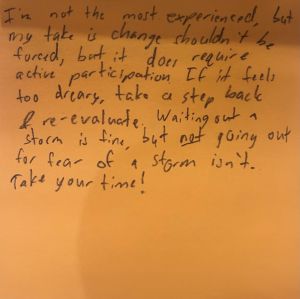 I'm not the most experienced, but
my take is change shouldn't be
forced, but it does require
active participation If it feels
too dreary, take a step back
& re-evaluate. Waiting out a
storm is fine, but not going out
for fear of a storm isn't.
Take your time!